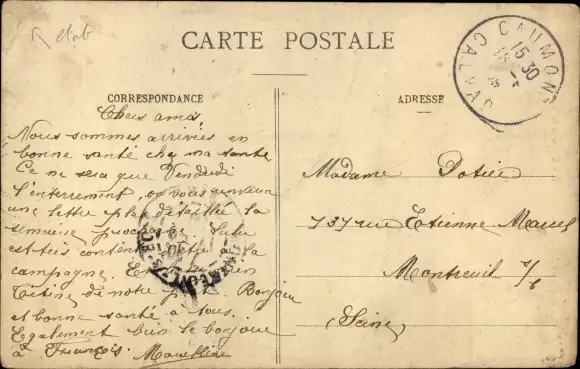 CARTE POSTALE
CAUMONT
15 30
CALVADOS
CORRESPONDANCE
ADRESSE
Chers amis,
Nous sommes arrivées en
bonne santé chez ma tante
Ce ne sera que Vendredi
l'enterrement, on vous enverra
une lettre plus détaillée la
semaine prochaine
est très contente la
campagne.
de notre Bonjour
et bonne santé à tous.
Egalement bien le bonjour
à François.
Madame Potier
137 rue Etienne Marcel
Montreuil s/b
Seine